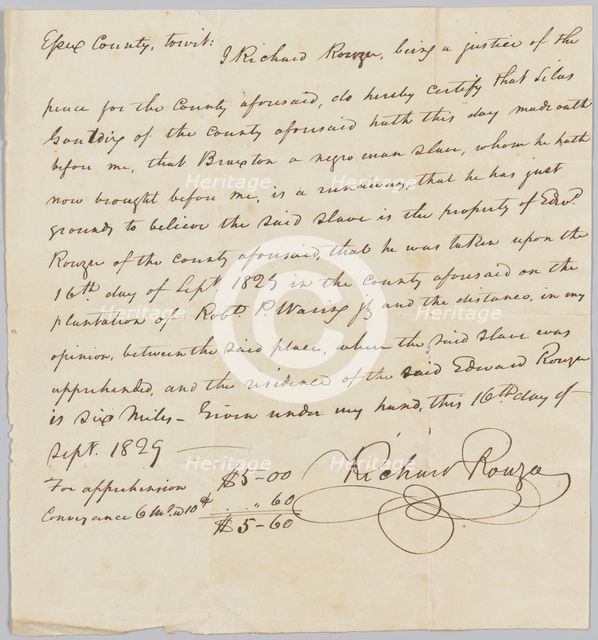 Essex County, towit:
I Richard Rouze, being a justice of the
peace for the County aforesaid, do hereby certify that Silas
Goulding of the County aforesaid hath this day made oath
before me, that Braxton a negro man slave, whom he hath
now brought before me, is a runaway, that he has just
grounds to believe the said slave is the property of Edwd.
Rouze of the county aforesaid, that he was taken upon the
16th day of Sept. 1829 in the county aforesaid on the
plantation of Robt. P. Waring Jr and the distance, in my
opinion, between the said place, where the said slave was
apprehended, and the residence of the said Edward Rouze
is six miles - Given under my hand, this 16th day of
Sept. 1829
For apprehension $5-00
Conveyance 6 Ms. @ 10 ,, 60
$5-60
Richard Rouze
Heritage Heritage Heritage
Heritage Heritage Heritage
Heritage Heritage Heritage
©